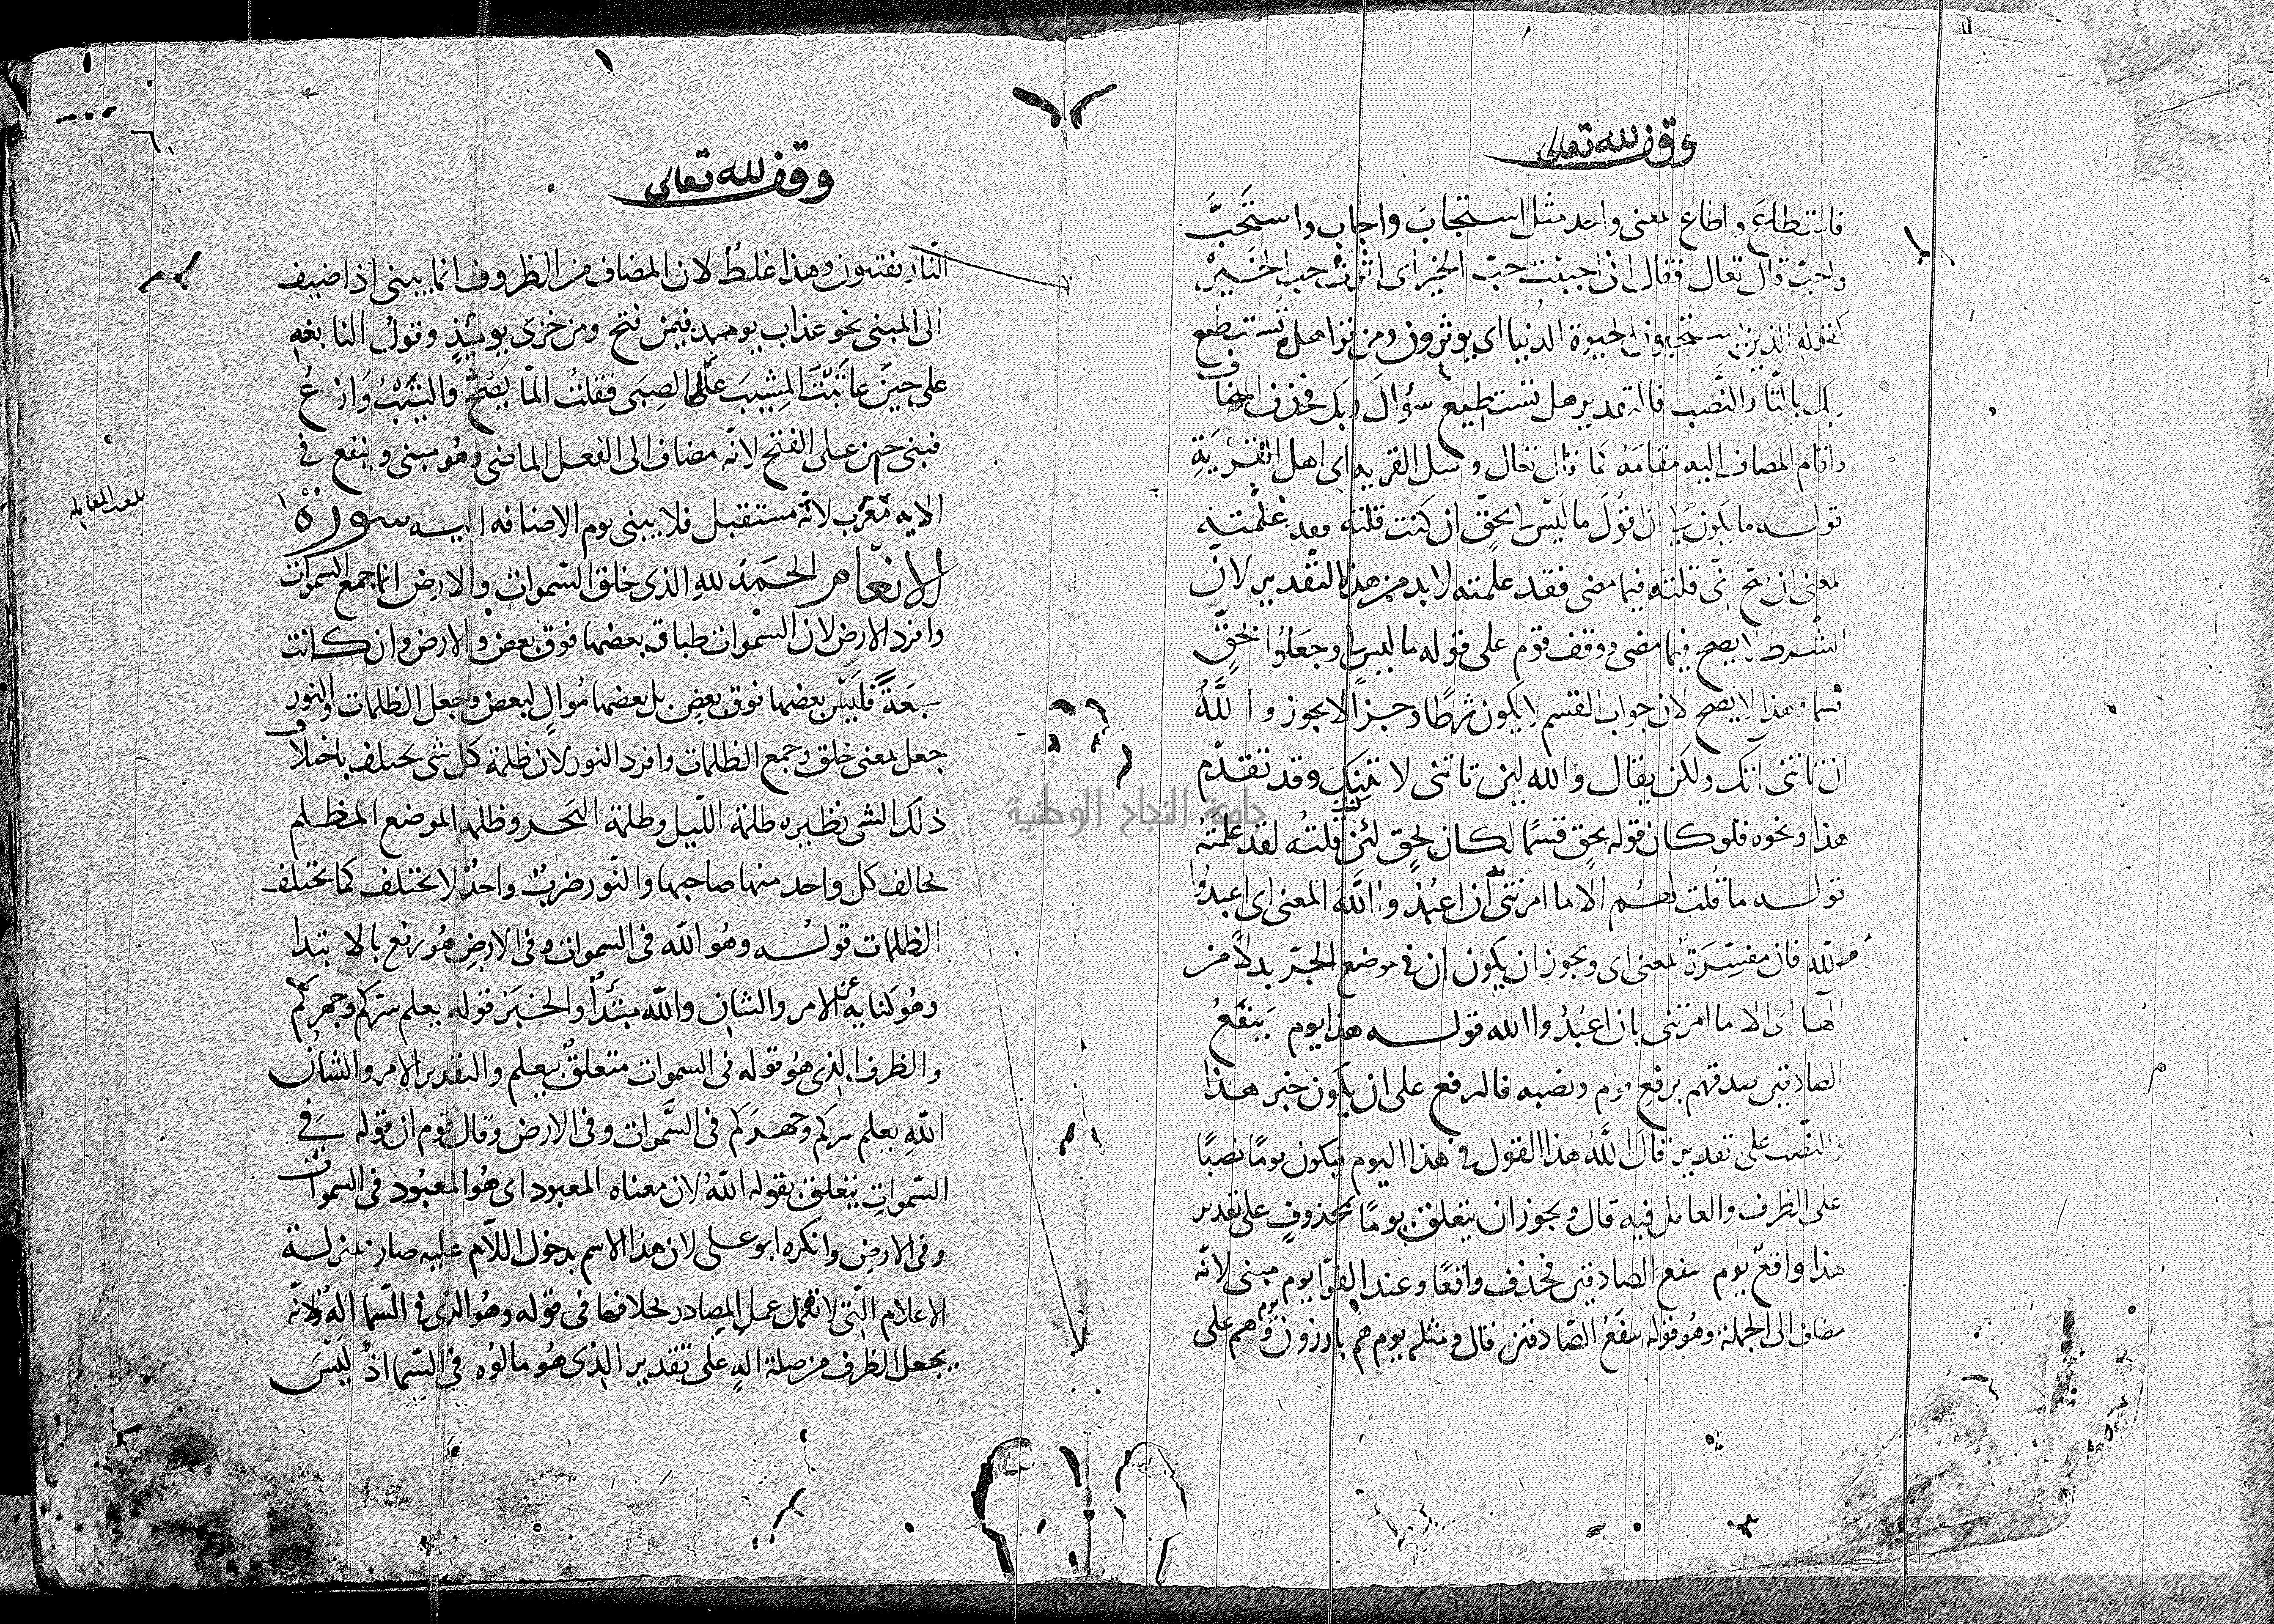 وقف لله تعالى
فاستطاع واطاع بمعنى واحد مثل استجاب واجاب واستحبَّ
واحبّ قال تعالى فقال انى احببت حبّ الخير اى اثرت حب الخير
كقوله الذين يستحبون الحيوة الدنيا اى يوثرون ومن قرا هل تستطيع
ربك بالتا والنَّصب فالتقدير هل تستطيع سؤالَ ربك فحذف المضاف
واقام المضاف اليه مقامَهُ كما قال تعالى وسل القريه اى اهل القَرْيَةِ
قوله ما يكون لى ان اقول ما ليس لى بحقّ ان كنت قلته فقد علمته
معنى ان صحّ انّى قلته فيما مضى فقد علمته لا بد من هذا التقدير لانّ
الشرط لا يصح فيما مضى ووقف قوم على قوله ما ليس لى وجعلوا بحقٍّ
قسما وهذا لا يصح لان جواب القسم لا يكون شرطًا وجزا لا يجوز واللَّهُ
ان تاتنى اتك ولكن يقال والله لين تاتنى لاتينك وقد تقدّم
هذا ونحوه فلو كان قوله بحق قسمًا لكان بحق لئن كنت قلتُه لقد علمتَهُ
قوله ما قُلت لهُم الّا ما امرتنى به ان اعبُدُوا اللَّهَ المعنى اى اعبدُوا
اللّه فان مفسِّرَة بمعنى اى ويجوز ان يكون ان فى موضع الجرّ بدلاً من
الها اى الا ما امرتنى بان اعبُدُوا الله قوله هذا يوم يَنفَعُ
الصادقين صدقهم برفع يوم ونصبه فالرفع على ان يكون خبر هذا
والنّصب على تقدير قال اللَّهُ هذا القول فى هذا اليوم فيكون يومًا نصبًا
على الظرف والعامل فيه قال ويجوز ان يتعلق يومًا بمحذوفٍ على تقدير
هذا واقعٌ يوم ينفع الصادقين فحذف واقعًا وعند الفرّا يوم مبنى لانّه
مضاف الى الجملة وهُو قوله ينفَعُ الصّادقين قال ومثله يوم هُم بارزون ويوم هم على
وقف لله تعالى
النّار يفتنون وهذا غلطٌ لان المضاف من الظروف انما يبنى اذا اضيف
الى المبنى نحو عذاب يوميذ فيمن فتح ومن خزى يوميذٍ وقول النابغه
على حينَ عاتَبْتُ المشيبَ على الصِبَى فقلتُ المّا يَصْحُ والشَّيْبُ وَازِعُ
فبنى حين على الفتح لانّه مضاف الى الفعل الماضى وهُو مبنى وينفع فى
الايه مُعْرَب لانّه مستقبل فلا يبنى يوم لاضافه اليه سورة
الانعام الحمد لله الذى خلق السّموات والارض انما جمع السموات
وافرد الارض لان السّموات طباق بعضها فوق بعض والارض وان كانت
سبعَةً فَلَيْسَ بعضها فوق بعض بل بعضها مُوالٍ لبعض وجعل الظلمات والنور
جعل بمعنى خلق وجمع الظلمات وافرد النور لان ظلمةَ كل شى يختلف باختلاف
ذلك الشى نظيره ظلمة اللّيل وظلمة البَحر وظلمه الموضع المظلم
يخالف كل واحد منها صاحبها والنّور ضربٌ واحدٌ لا يختلف كما يختلف
الظلمات قوله وهُو اللّه فى السموات وفى الارضِ هُو رفع بالابتدا
وهُو كنايه عن الامر والشان واللّه مبتدأٌ والخبَرُ قوله يعلم سرّكم وجهركم
والظرف الذى هُو قوله فى السموات متعلقٌ بيعلم والتقدير الامر والشان
اللّه يعلم سركم وجهركم فى السَّموات وفى الارض وقال قوم ان قوله فى
السّمواتِ يتعلق بقوله اللّهُ لان معناه المعبود اى هُو المعبُود فى السموات
وفى الارض وانكره ابو على لان هذا الاسم بدخول اللّام عليه صار بمنزلة
الاعلام الّتى لا تعمل عمل المصادر بخلاف ما فى قوله وهُو الذى فى السّما الهٌ لانّه
يجعل الظرف من صلة الهٍ على تقدير الذى هُو مالوُه فى السّما اذ لَيْسَ
بلغ المقابله
جامعة النجاح الوطنية